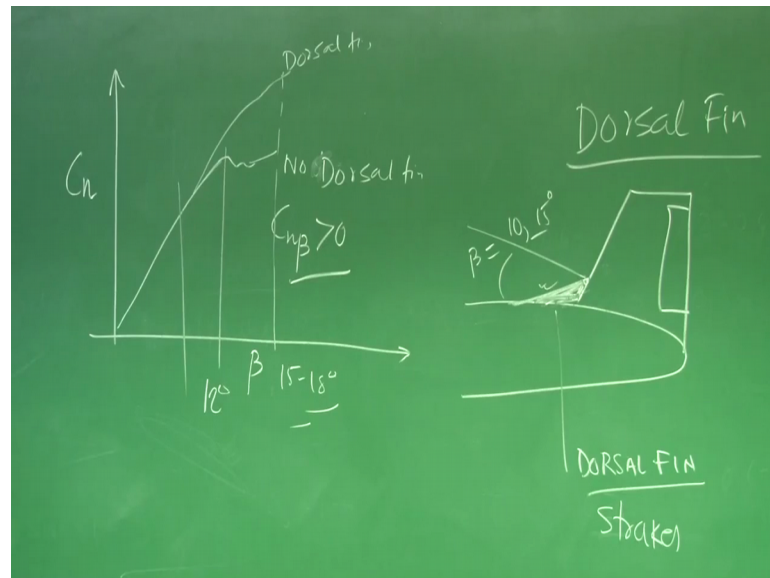 Dorsal fin
Cn
No Dorsal fin
Cnβ>0
12°
β
15-18°
Dorsal Fin
β = 10, 15°
DORSAL FIN
Strakes